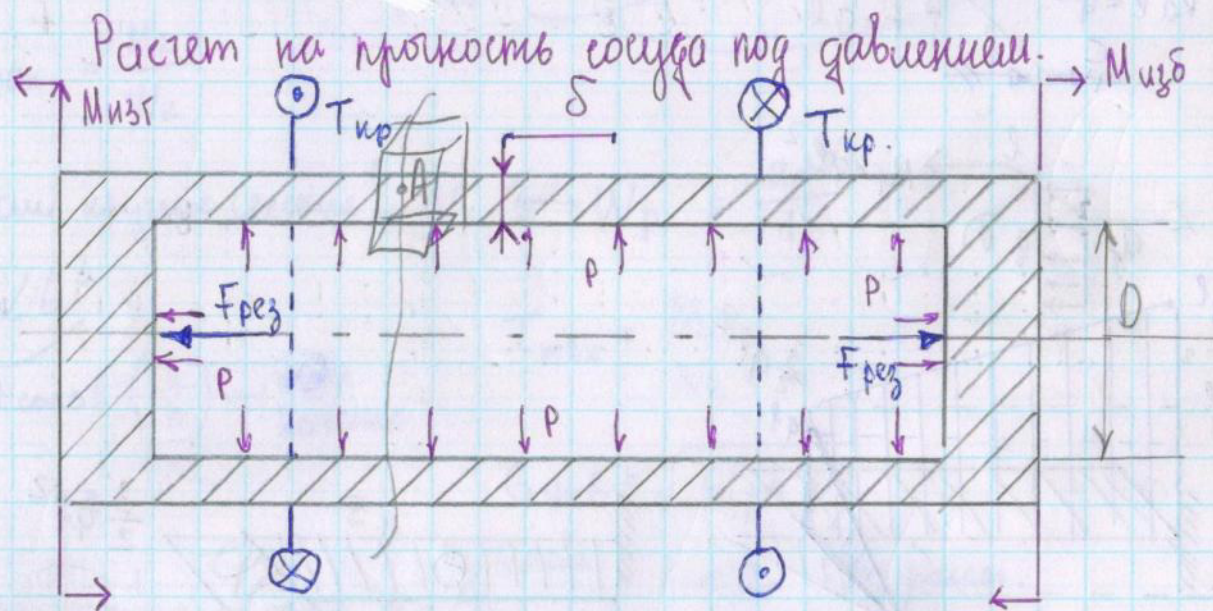 Расчет на прочность сосуда под давлением.
Mизг
Tкр
δ
Tкр.
Mизб
A
P
P
Fрез
D
Fрез
P
P